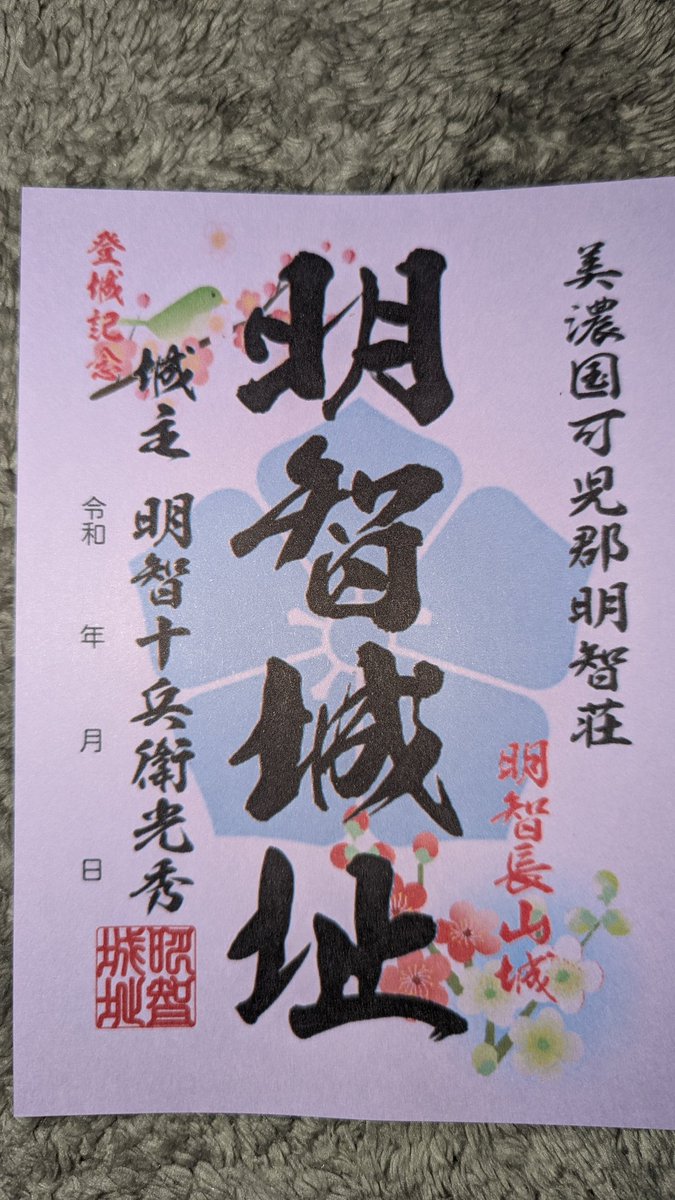 美濃国可児郡明智荘
明智長山城
明智城址
登城記念
城主 明智十兵衛光秀
令和 年 月 日
明智
城址